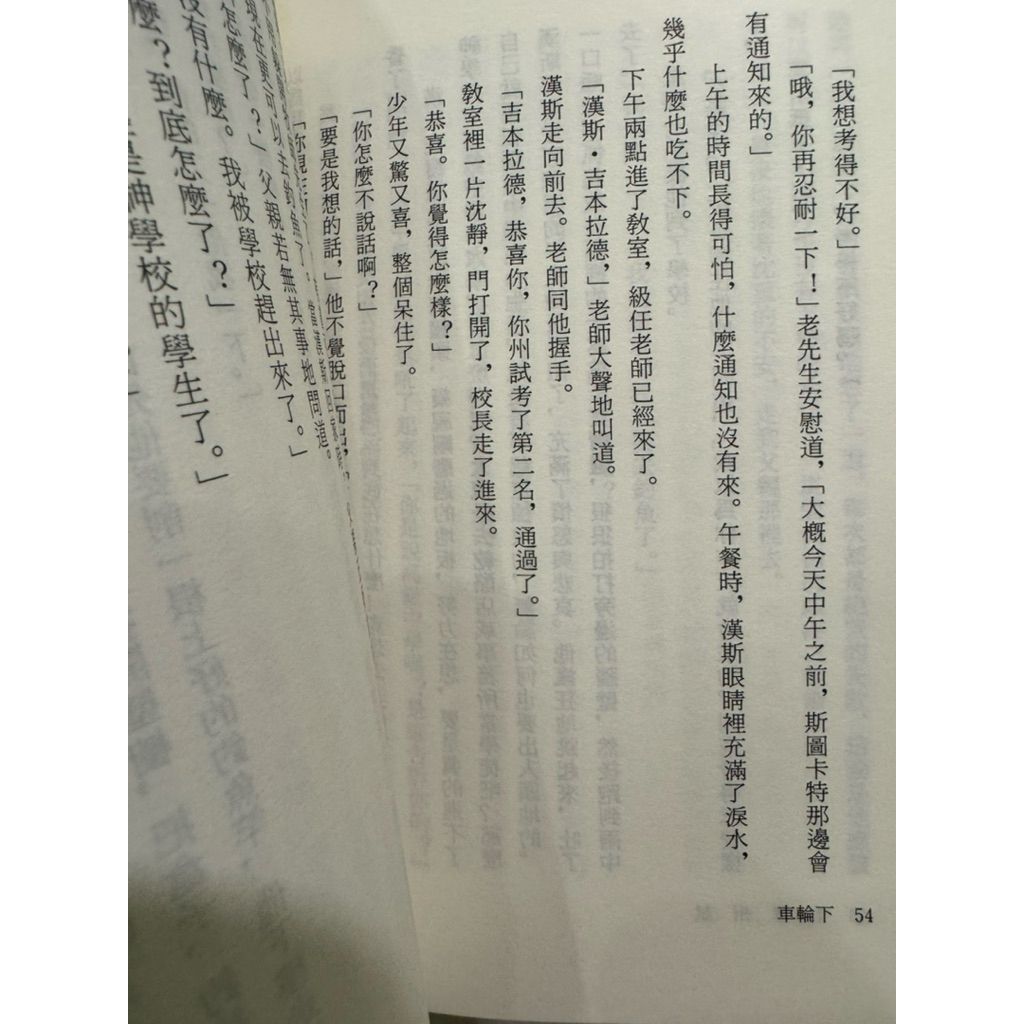 「我想考得不好。」
「哦，你再忍耐一下！」老先生安慰道，「大概今天中午之前，斯圖卡特那邊會
有通知來的。」
上午的時間長得可怕，什麼通知也沒有來。午餐時，漢斯眼睛裡充滿了淚水，
幾乎什麼也吃不下。
下午兩點進了教室，級任老師已經來了。
「漢斯·吉本拉德，」老師大聲地叫道。
漢斯走向前去。老師同他握手。
「吉本拉德，恭喜你，你州試考了第二名，通過了。」
教室裡一片沈靜，門打開了，校長走了進來。
「恭喜。你覺得怎麼樣？」
少年又驚又喜，整個呆住了。
「你怎麼不說話啊？」
「要是我想的話，」他不覺脫口而出，
現在更可以去釣魚了。
怎麼了？」父親若無其事地問道。
沒有什麼。我被學校趕出來了。」
麼？到底怎麼了？」
是神學校的學生了。」
車輪下 54